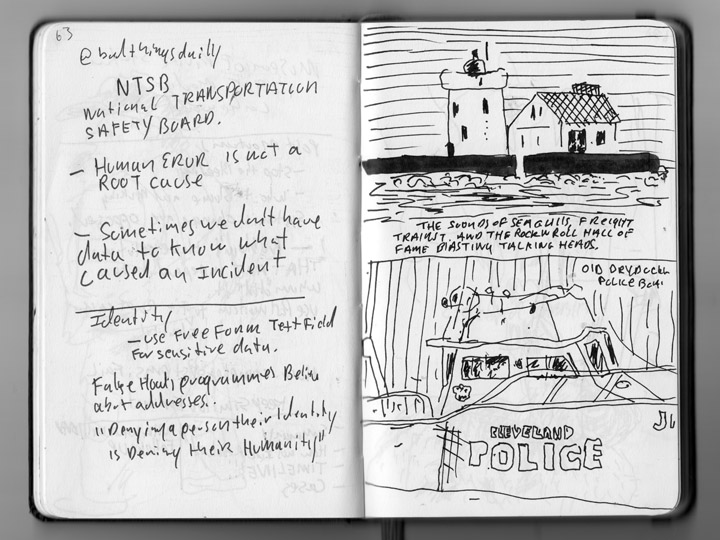 63
@badthingsdaily
NTSB
National TRANSPORTATION
SAFETY BOARD.
- HUMAN EROR IS not a
ROOT CAUSE
- Sometimes we don't have
data to know what
caused an Incident
Identity
- USE FREE FORM Text Field
For sensitive data.
False Hoods programmers Belive
abut addresses.
"Denying a person their Identity
is Denying their Humanity"
THE SOUNDS OF SEAGULLS, FREIGHT
TRAINS, AND THE ROCK N ROLL HALL OF
FAME BLASTING TALKING HEADS.
OLD DRYDOCKED
POLICE BOAT
CLEVELAND
POLICE